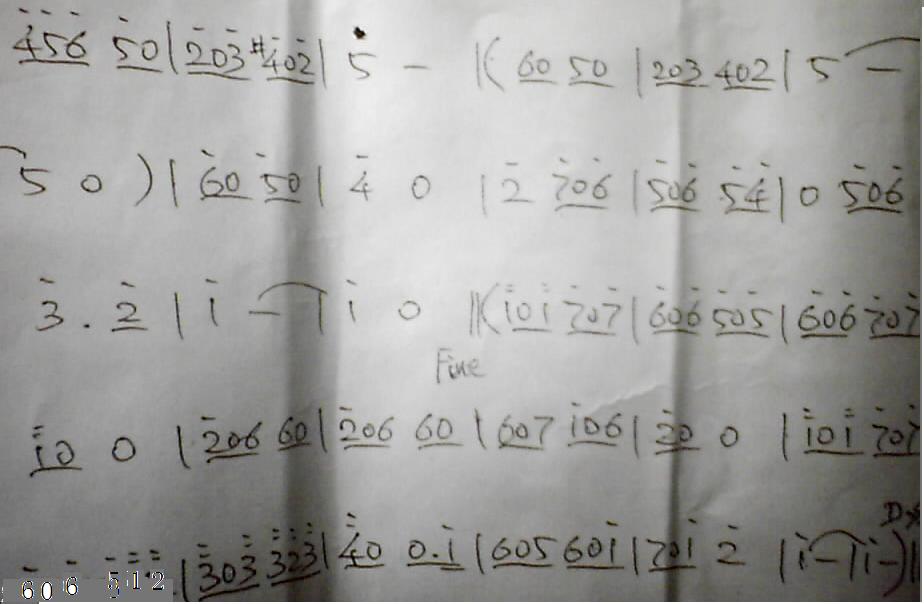 456 50 | 203 #402 | 5 - |( 60 50 | 203 402 | 5 -
5 0 ) | 60 50 | 4 0 | 2 706 | 506 54 | 0 506
3 . 2 | 1 - | 1 0 |( 101 707 | 606 505 | 606 707
Fine
10 0 | 206 60 | 206 60 | 607 106 | 20 0 | 101 707
606 512 | 303 323 | 40 0.1 | 605 601 | 701 2 | 1 - | 1 - )|